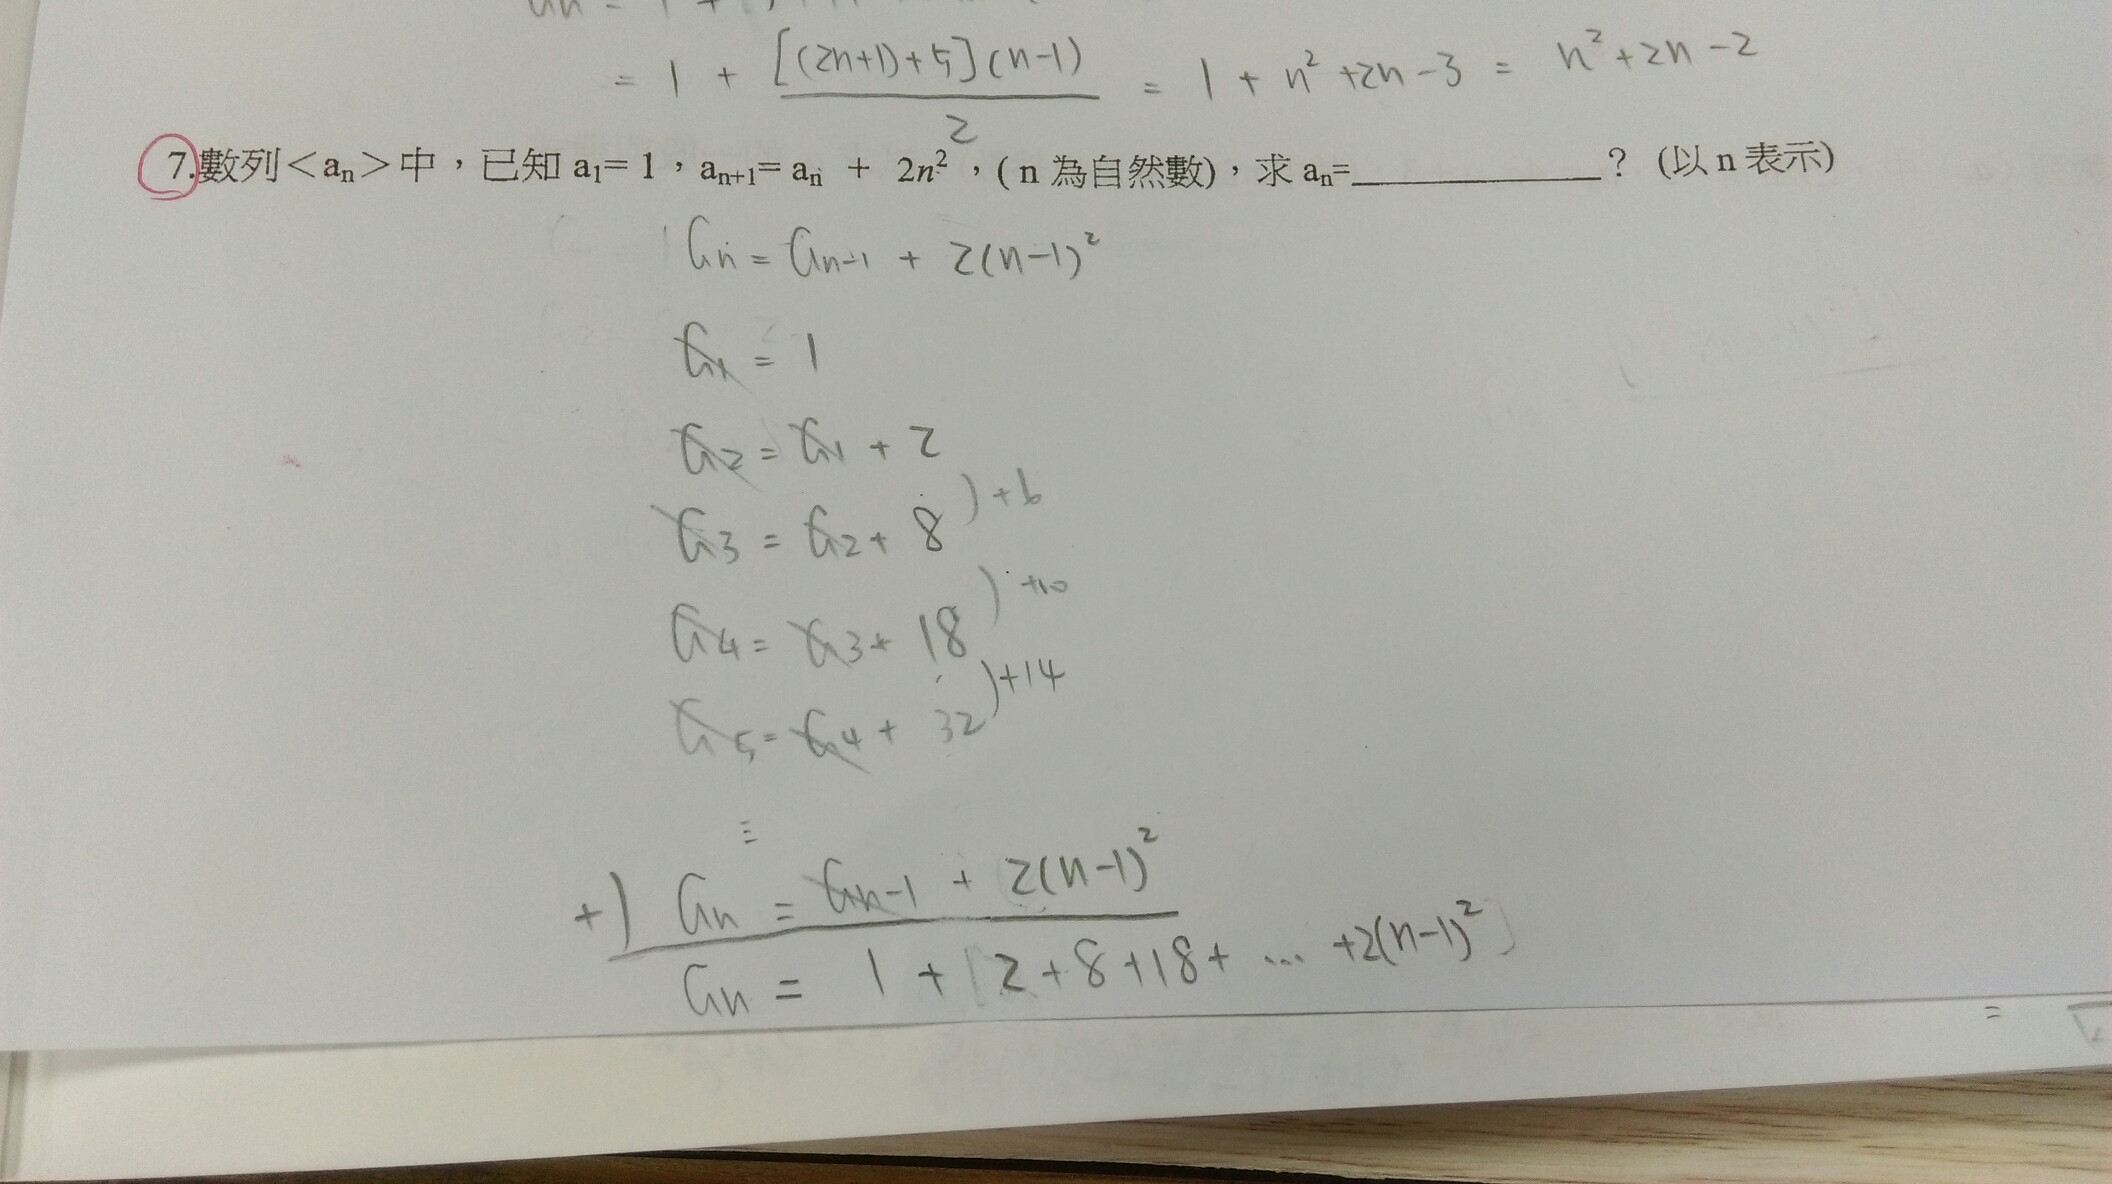 = 1 + [(2n+1)+5](n-1) / 2 = 1 + n² + 2n - 3 = n² + 2n - 2
7.數列＜aₙ＞中，已知 a₁= 1，aₙ₊₁= aₙ + 2n²，( n 為自然數)，求 aₙ=____________？ (以 n 表示)
aₙ = aₙ₋₁ + 2(n-1)²
a₁ = 1
a₂ = a₁ + 2
a₃ = a₂ + 8 ) +6
a₄ = a₃ + 18 ) +10
a₅ = a₄ + 32 ) +14
⋮
+) aₙ = aₙ₋₁ + 2(n-1)²
aₙ = 1 + [2+8+18+ ... +2(n-1)²]
=